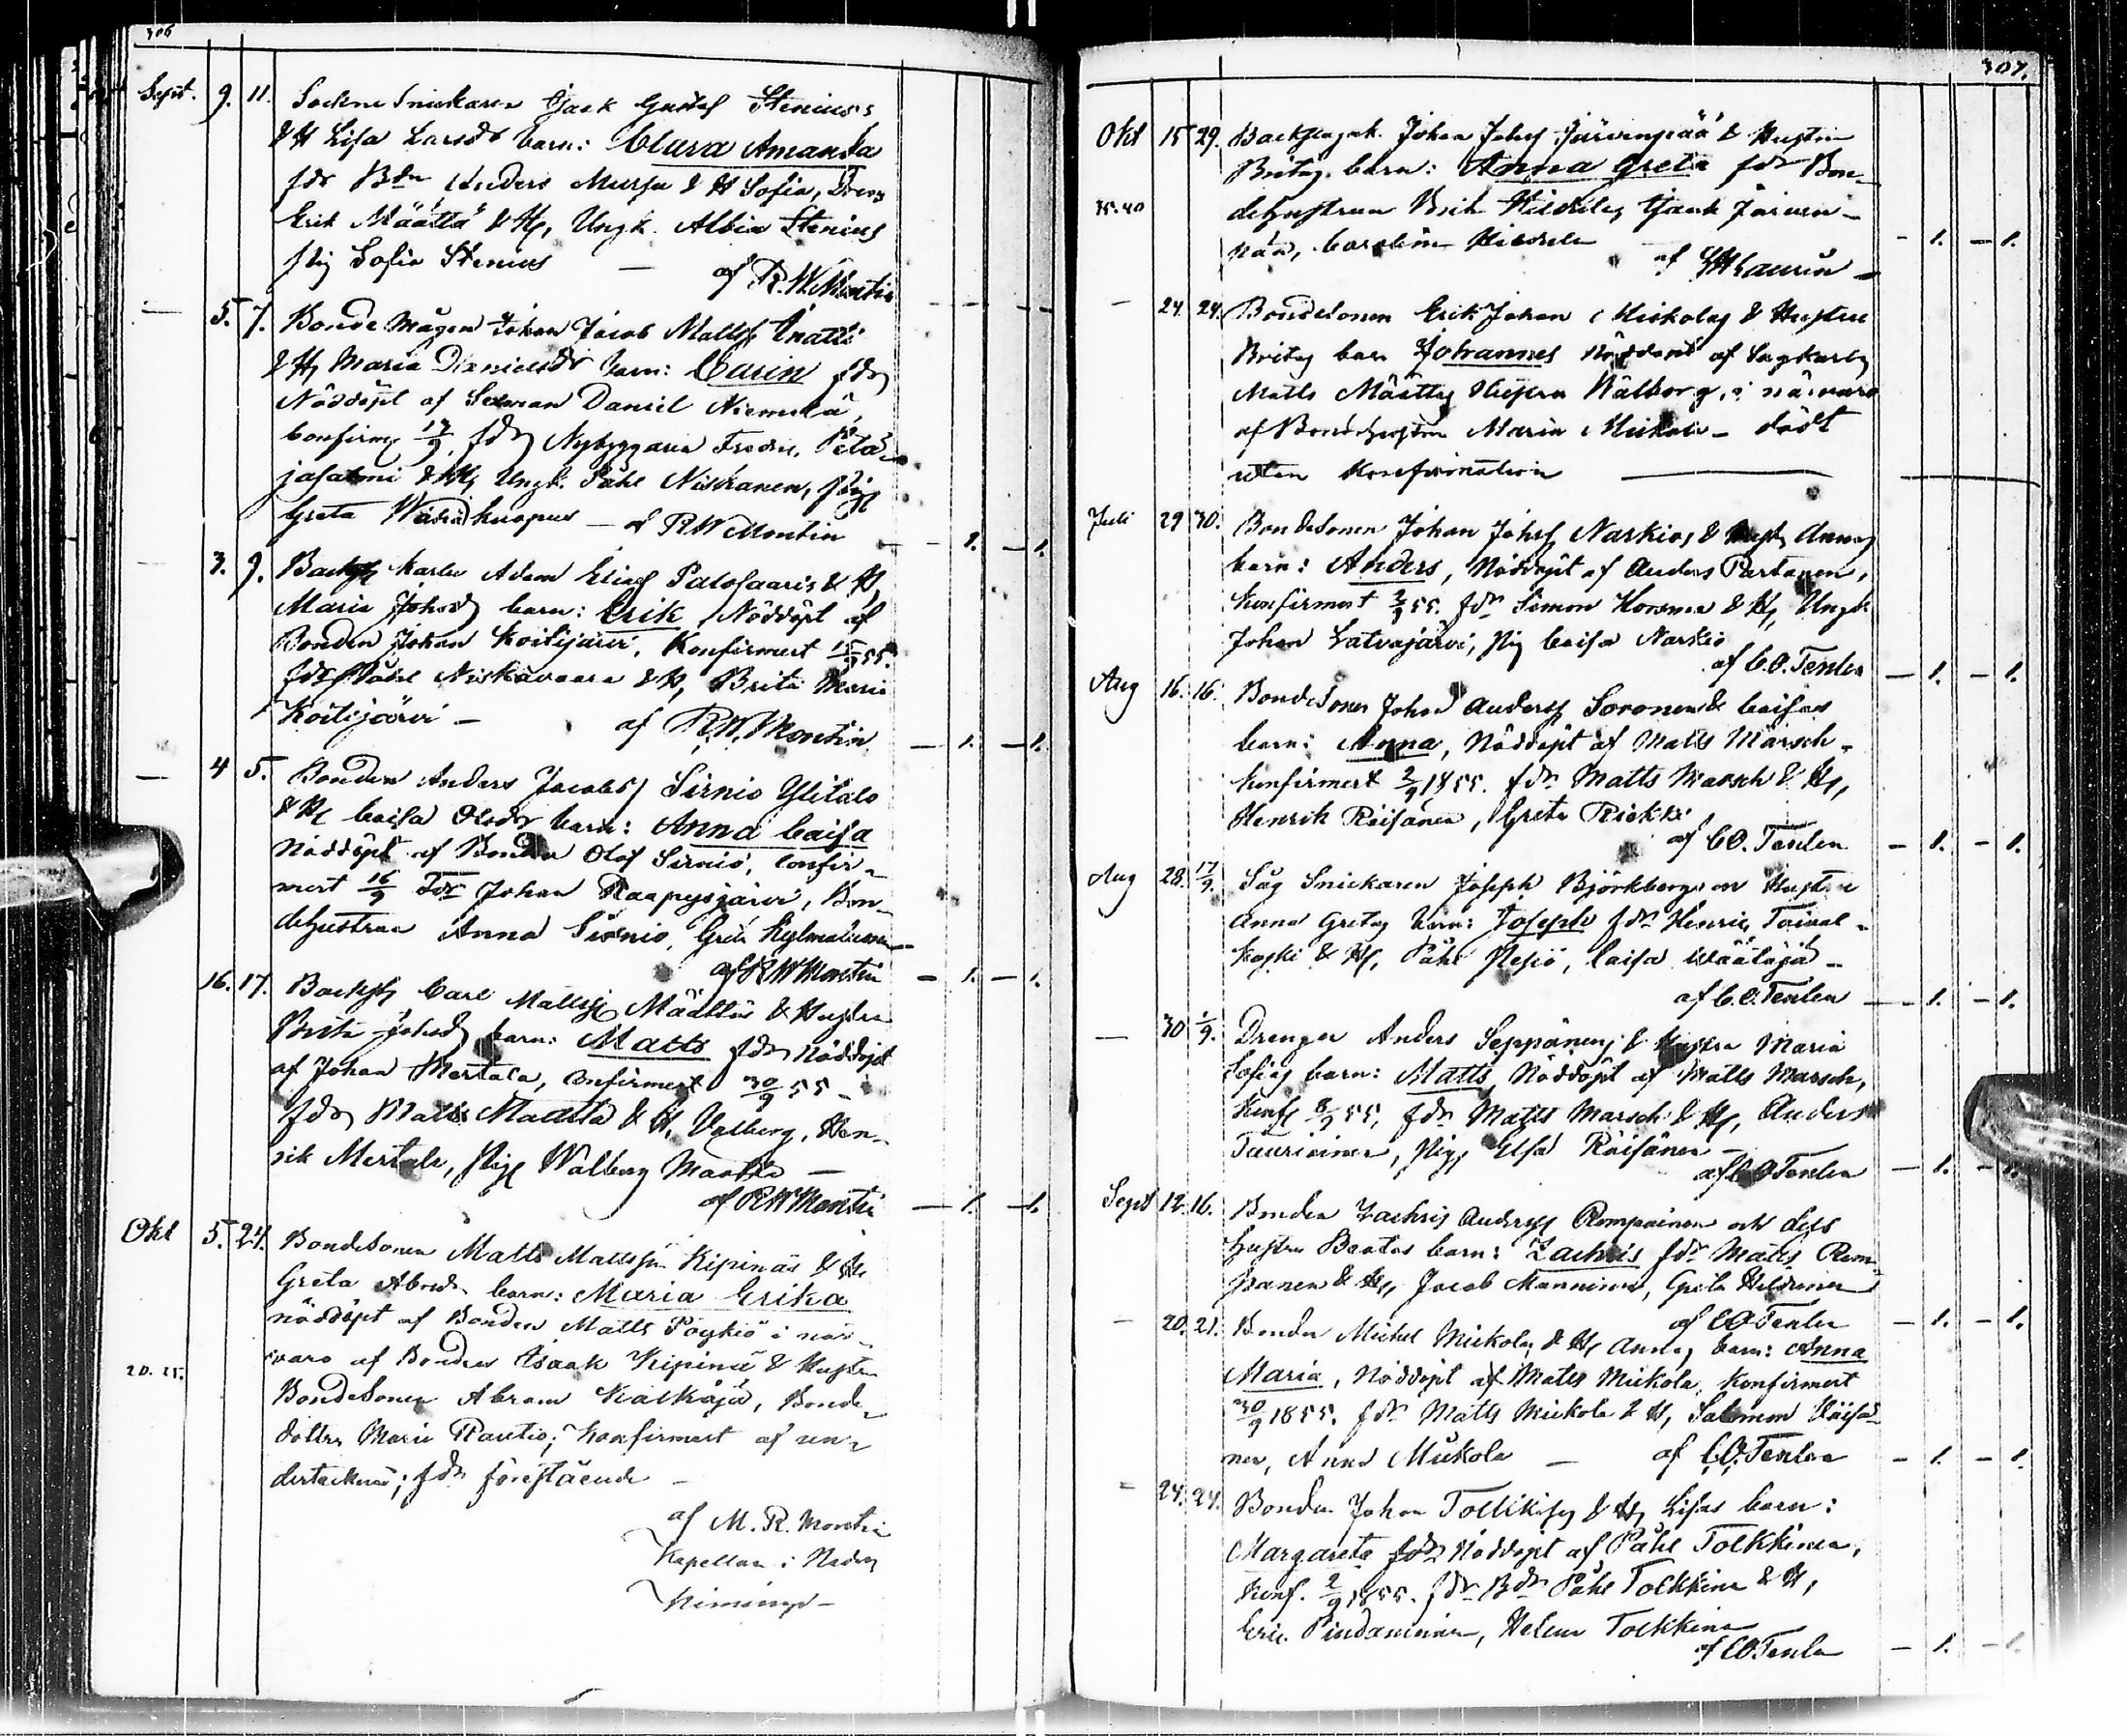 306
Sept. 9. 11. Sockne Snickaren Isak Gustaf Stenius's
& H Lisa Larsdr barn: Clura Amanda
fdr Bdn Anders Mursu & H Sofia, Dreng
Erik Määttä & H, Ungk. Albin Stenius
Pig Sofia Stenius — af R. W. Montin
— 5. 7. Bonde mågen Johan Jacob Matts
& H, Maria Danielsdr barn: Carin fdr
Nöddöpt af Sexman Daniel Niemelä,
confirm 17/9, fdr Nybyggaren Fredr. Petä-
jasalmi & H, Ungk. Påhl Niskanen, Pig
Greta — af R W Montin — 1. — 1.
— 3. 9. Backst karlen Adam Eliaes Palosaaris & H,
Maria Johsdr barn: Erik, Nöddöpt af
Bonden Johan Koitijärvi, Konfirmert 15/9 55.
fdr Påhl Niskavaara & H, Brita Maria
Koitijärvi — af R. W. Montin — 1. — 1.
— 4 5. Bonden Anders Jacobs Sirniö Ylitalo
& H, Caisa Olsdr barn: Anna Caisa
Nöddöpt af Bonden Olof Sirniö, Confir-
mert 16/9 Fdr Johan Raapysjärvi, Bon-
dehustrun Anna Sirniö, Greta
af R W Montin — 1. — 1.
16. 17. Backst Carl Mattss Määttäs & Hustru
Brita Johsdr barn: Matts fdr Nöddöpt
af Johan Mertala, Confirmert 30/9 55 —
fdr Matts Määttä & H, Valborg, Hen-
rik Mertala, Pig Walborg Määttä —
af R W Montin — 1. — 1.
Okt 5. 24. Bondesonen Matts Mattsson Kipinäs & H
Greta Abrsdr barn: Maria Erika
nöddöpt af Bonden Matts Pöykiö i när-
varo af Bonden Isaak Kipinä & Hustru
20. 25. Bondesonen Abram Kalkåja, Bonde-
dottr Maria Rautio; Konfirmert af un-
dertecknad; fdr förestående —
af M. R. Montin
Kapellan i Neder
Kiminge —
307.
Okt 15 29. Johan Johss Järvenpää & Hustru
Britas barn: Anna Greta fdr Bon-
35. 40 dehustrun Isaak Järven-
pää, Carolina — af Laurin — — 1. — 1.
— 24 24. Bondesonen Erik Johan Mickolas & Hustru
Britas barn Johannes Nöddöpt af
Matts Määttäs Hustru Walborg, i närvaro
af Bondehustrun Maria Mickola — död
utan Konfirmation —
Juli 29 30. Bondesonen Johan Johss Narkios & Hust, Annas
barn: Anders, Nöddöpt af Anders Partanen,
Konfirmert 2/9 55. fdr Simon & H, Ungk
Johan Latvajärvi, Pig Caisa Narkio
af C. O. Tenlén — 1. — 1.
Aug 16. 16. Bondesonen Johan Anderss Soronens & Caisas
barn: Anna, Nöddöpt af Matts Marsch —
Konfirmert 2/9 1855. fdr Matts Marsch & H,
Henrik Räisänen, Greta Riekki
af C O. Tenlén — 1. — 1.
Aug 28. 17/9. Såg Snickaren Joseph Björkbergs och Hustru
Anna Gretas barn: Joseph fdr Henric Toival-
koski & H, Påhl, Caisa Wäätäjä —
af C. O. Tenlén — 1. — 1.
— 30 1/9. Drengen Anders Seppänens & Hustru Maria
Sofias barn: Matts, Nöddöpt af Matts Marsch,
Konf 8/9 55, fdr Matts Marsch & H, Anders
Tauriainen, Pig, Elsa Räisänen —
af C O Tenlén — 1. — 1.
Sept 12. 16. Bonden Zachris Anderss Rompainen och dess
hustru Beatas barn: Zachris fdr Matts Rom-
painen & H, Jacob Manninen, Greta
af C O Tenlén — 1. — 1.
— 20. 21. Bonden Michel Mickolas & H, Annas barn: Anna
Maria, Nöddöpt af Matts Mickola, Konfirmert
30/9 1855. fdr Matts Mickola & H, Salomon Räisä-
nen, Anna Mickola — af C. O. Tenlén — 1. — 1.
— 24. 24. Bonden Johan & H, Lisas barn:
Margareta fdr Nöddöpt af Påhl Tolkkinen,
Konf. 2/9 1855. fdr Bdr Påhl Tolkkinen & H,
Eric, Helena Tolkkinen
af C O Tenlén — 1. — 1.